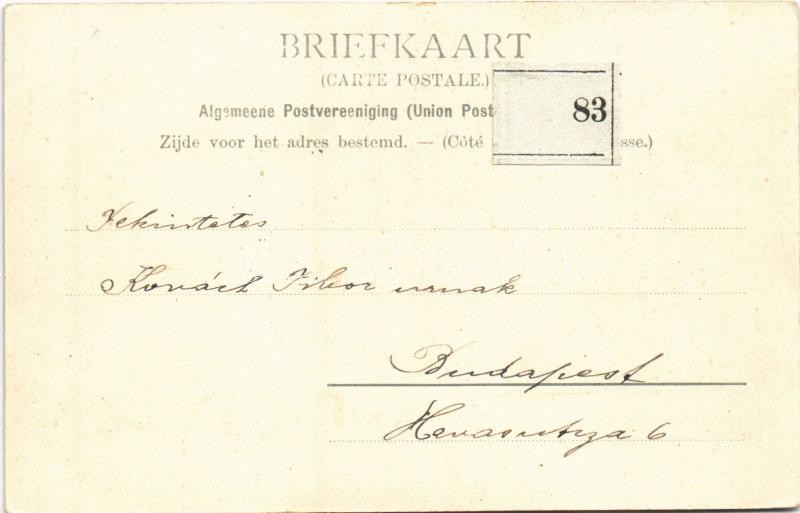 BRIEFKAART
(CARTE POSTALE.)
Algemeene Postvereeniging (Union Post
83
Zijde voor het adres bestemd. — (Côté sse.)
Tekintetes
Kovách Tibor urnak
Budapest
6